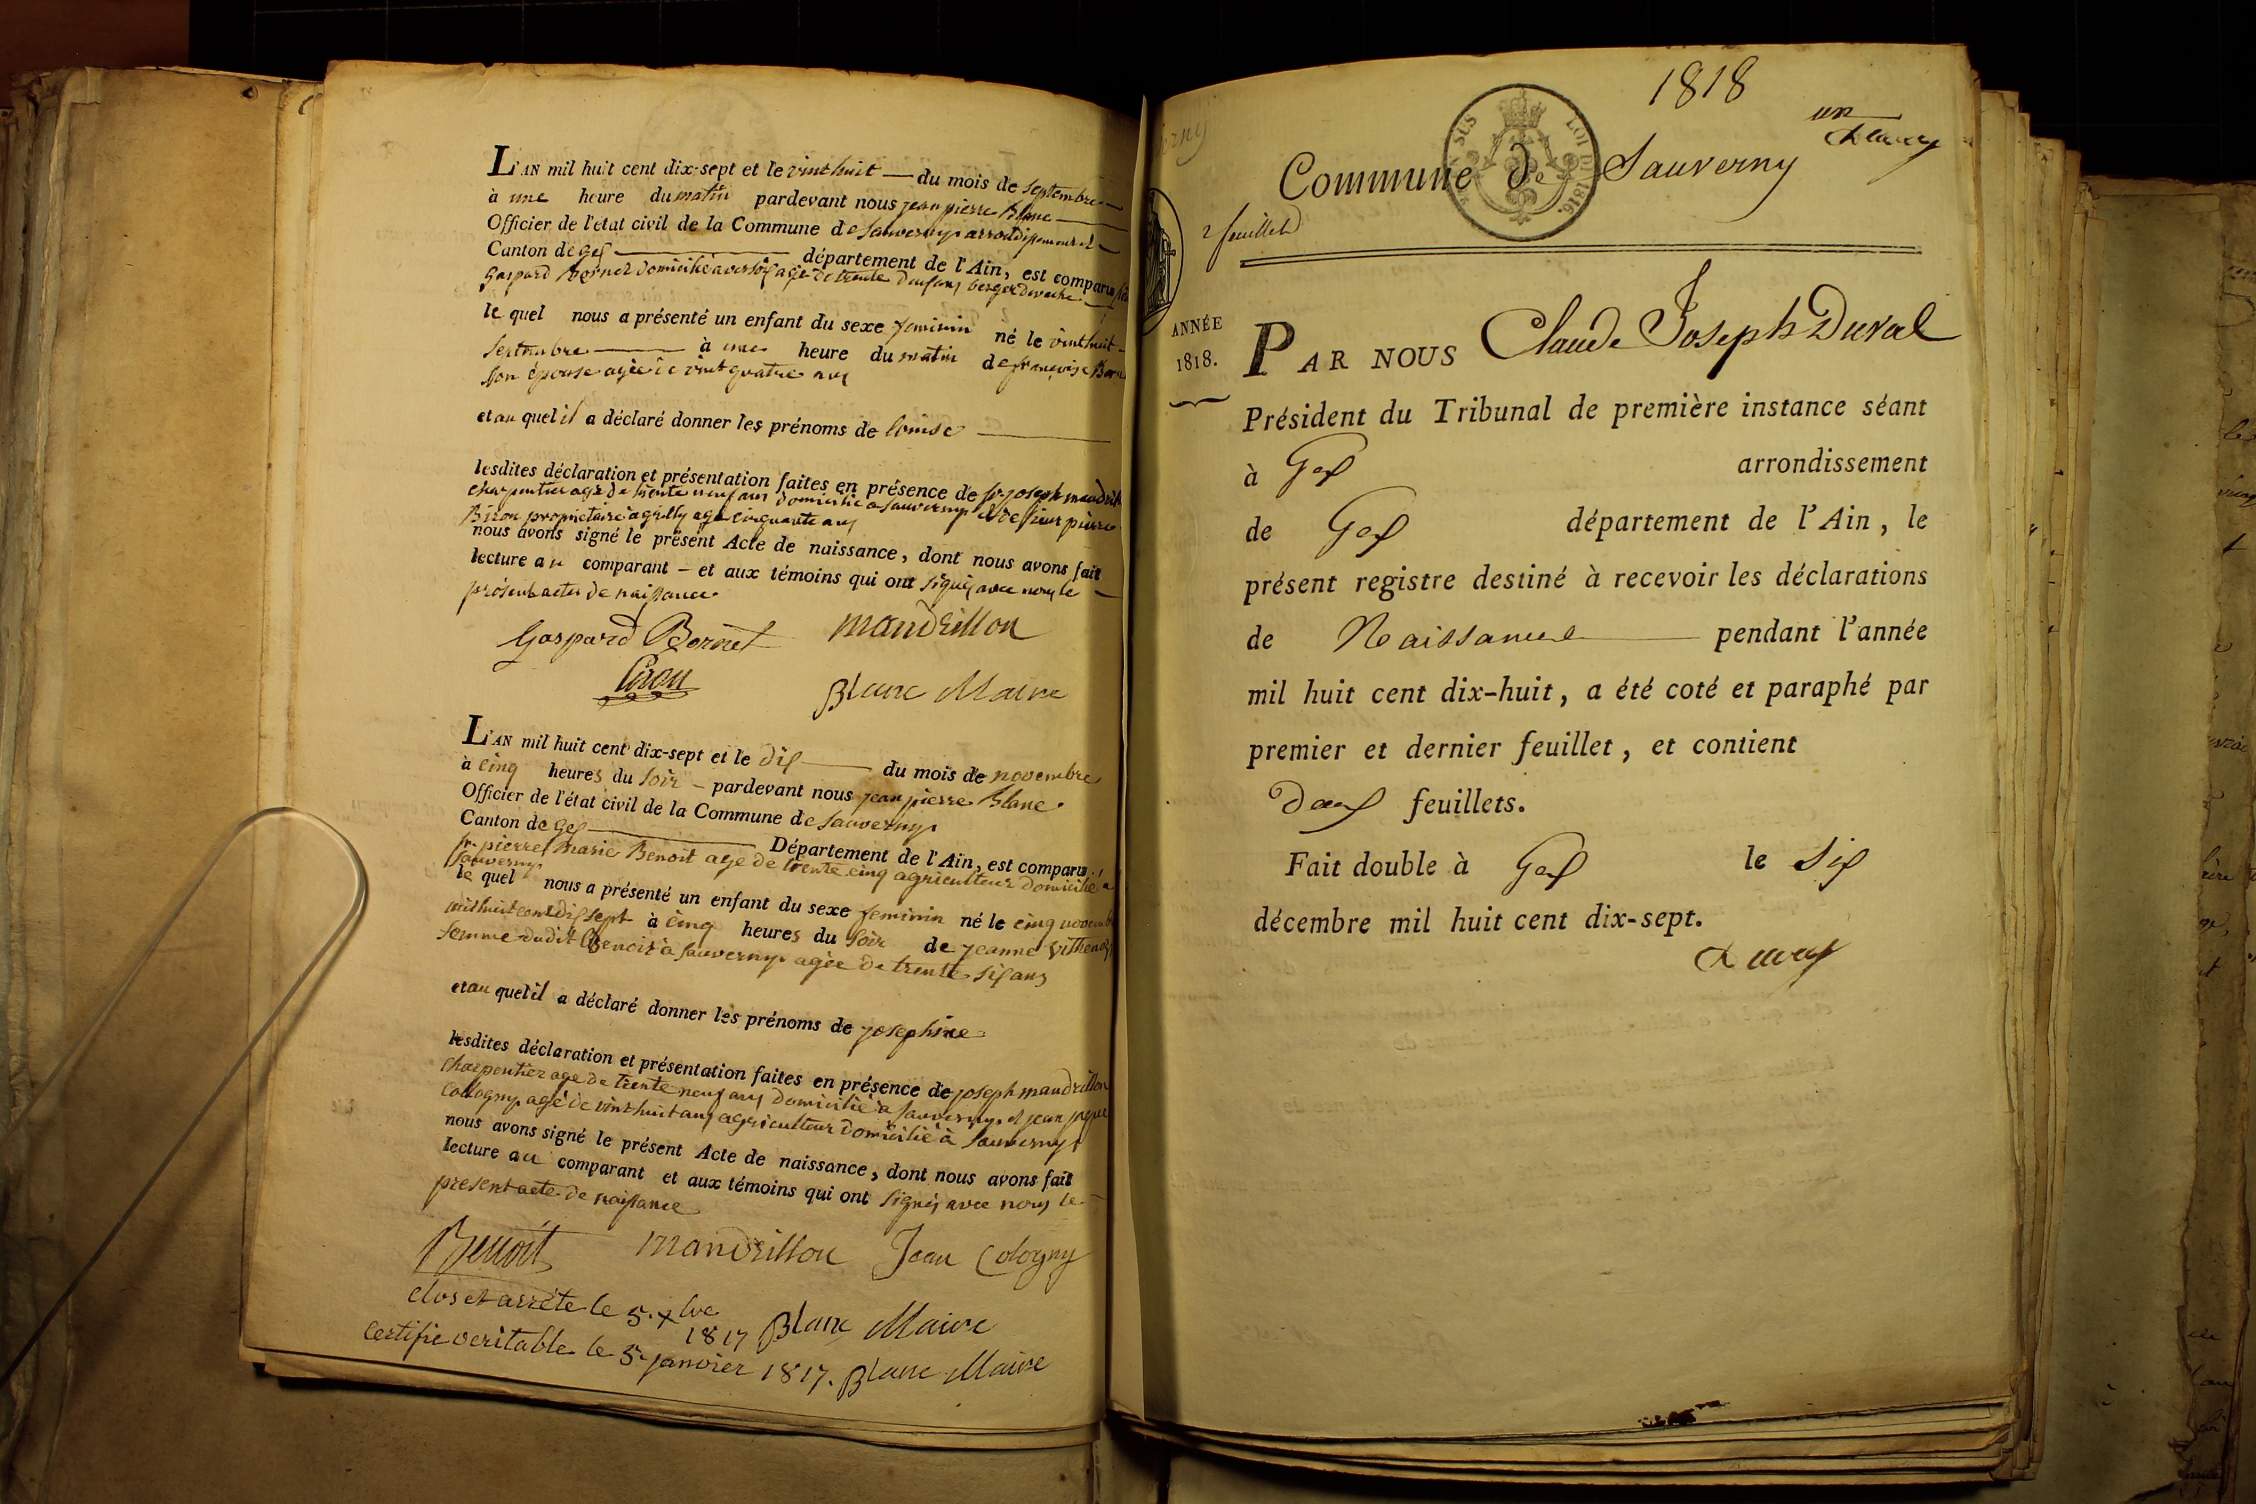 L'AN mil huit cent dix-sept et le vint huit — du mois de septembre
à une heure du matin pardevant nous jean pierre Blanc
Officier de l'état civil de la Commune de Sauverny arrondissement et
Canton de Gex département de l'Ain, est comparu
Gaspard Bornet domicilié a versoix agé de trente deux ans berger de vache
le quel nous a présenté un enfant du sexe feminin né le vint huit
Septembre à une heure du matin de françoise
son épouse agée de vint quatre ans
et au quel il a déclaré donner les prénoms de louise
lesdites déclaration et présentation faites en présence de sr. joseph mandrillon
charpentier agé de trente neuf ans domicilié a Sauverny et de sieur pierre
propriétaire a grilly agé cinquante ans
nous avons signé le présent Acte de naissance, dont nous avons fait
lecture au comparant — et aux témoins qui ont signés avec nous le
présent actes de naissance
Gaspard Bornet mandrillon
Blanc Maire
L'AN mil huit cent dix-sept et le dix du mois de novembre
à cinq heures du soir — pardevant nous jean pierre Blanc
Officier de l'état civil de la Commune de Sauverny
Canton de Gex Département de l'Ain, est comparu
sr. pierre marie Benoit age de trente cinq agriculteur domicilié a
Sauverny
le quel nous a présenté un enfant du sexe feminin né le cinq novembre
mil huit cent dix sept à cinq heures du soir de jeanne
femme dudit Benoit à Sauverny agée de trente six ans
et au quel il a déclaré donner les prénoms de josephine
lesdites déclaration et présentation faites en présence de joseph mandrillon
charpentier age de trente neuf ans domicilié à Sauverny et jean
Collogny agé de vint huit ans agriculteur domicilié à Sauverny
nous avons signé le présent Acte de naissance, dont nous avons fait
lecture au comparant et aux témoins qui ont signés avec nous le
present acte de naissance
Benoit mandrillon Jean Cologny
clos et arrété le 5. xbre
1817 Blanc Maire
certifie veritable le 5 janvier 1817. Blanc Maire
1818
un
Duval
Commune de Sauverny
LOI DE 1816.
2 feuillets
ANNÉE
1818.
PAR NOUS Claude Joseph Duval
Président du Tribunal de première instance séant
à Gex arrondissement
de Gex département de l'Ain, le
présent registre destiné à recevoir les déclarations
de Naissance pendant l'année
mil huit cent dix-huit, a été coté et paraphé par
premier et dernier feuillet, et contient
Deux feuillets.
Fait double à Gex le six
décembre mil huit cent dix-sept.
Duval